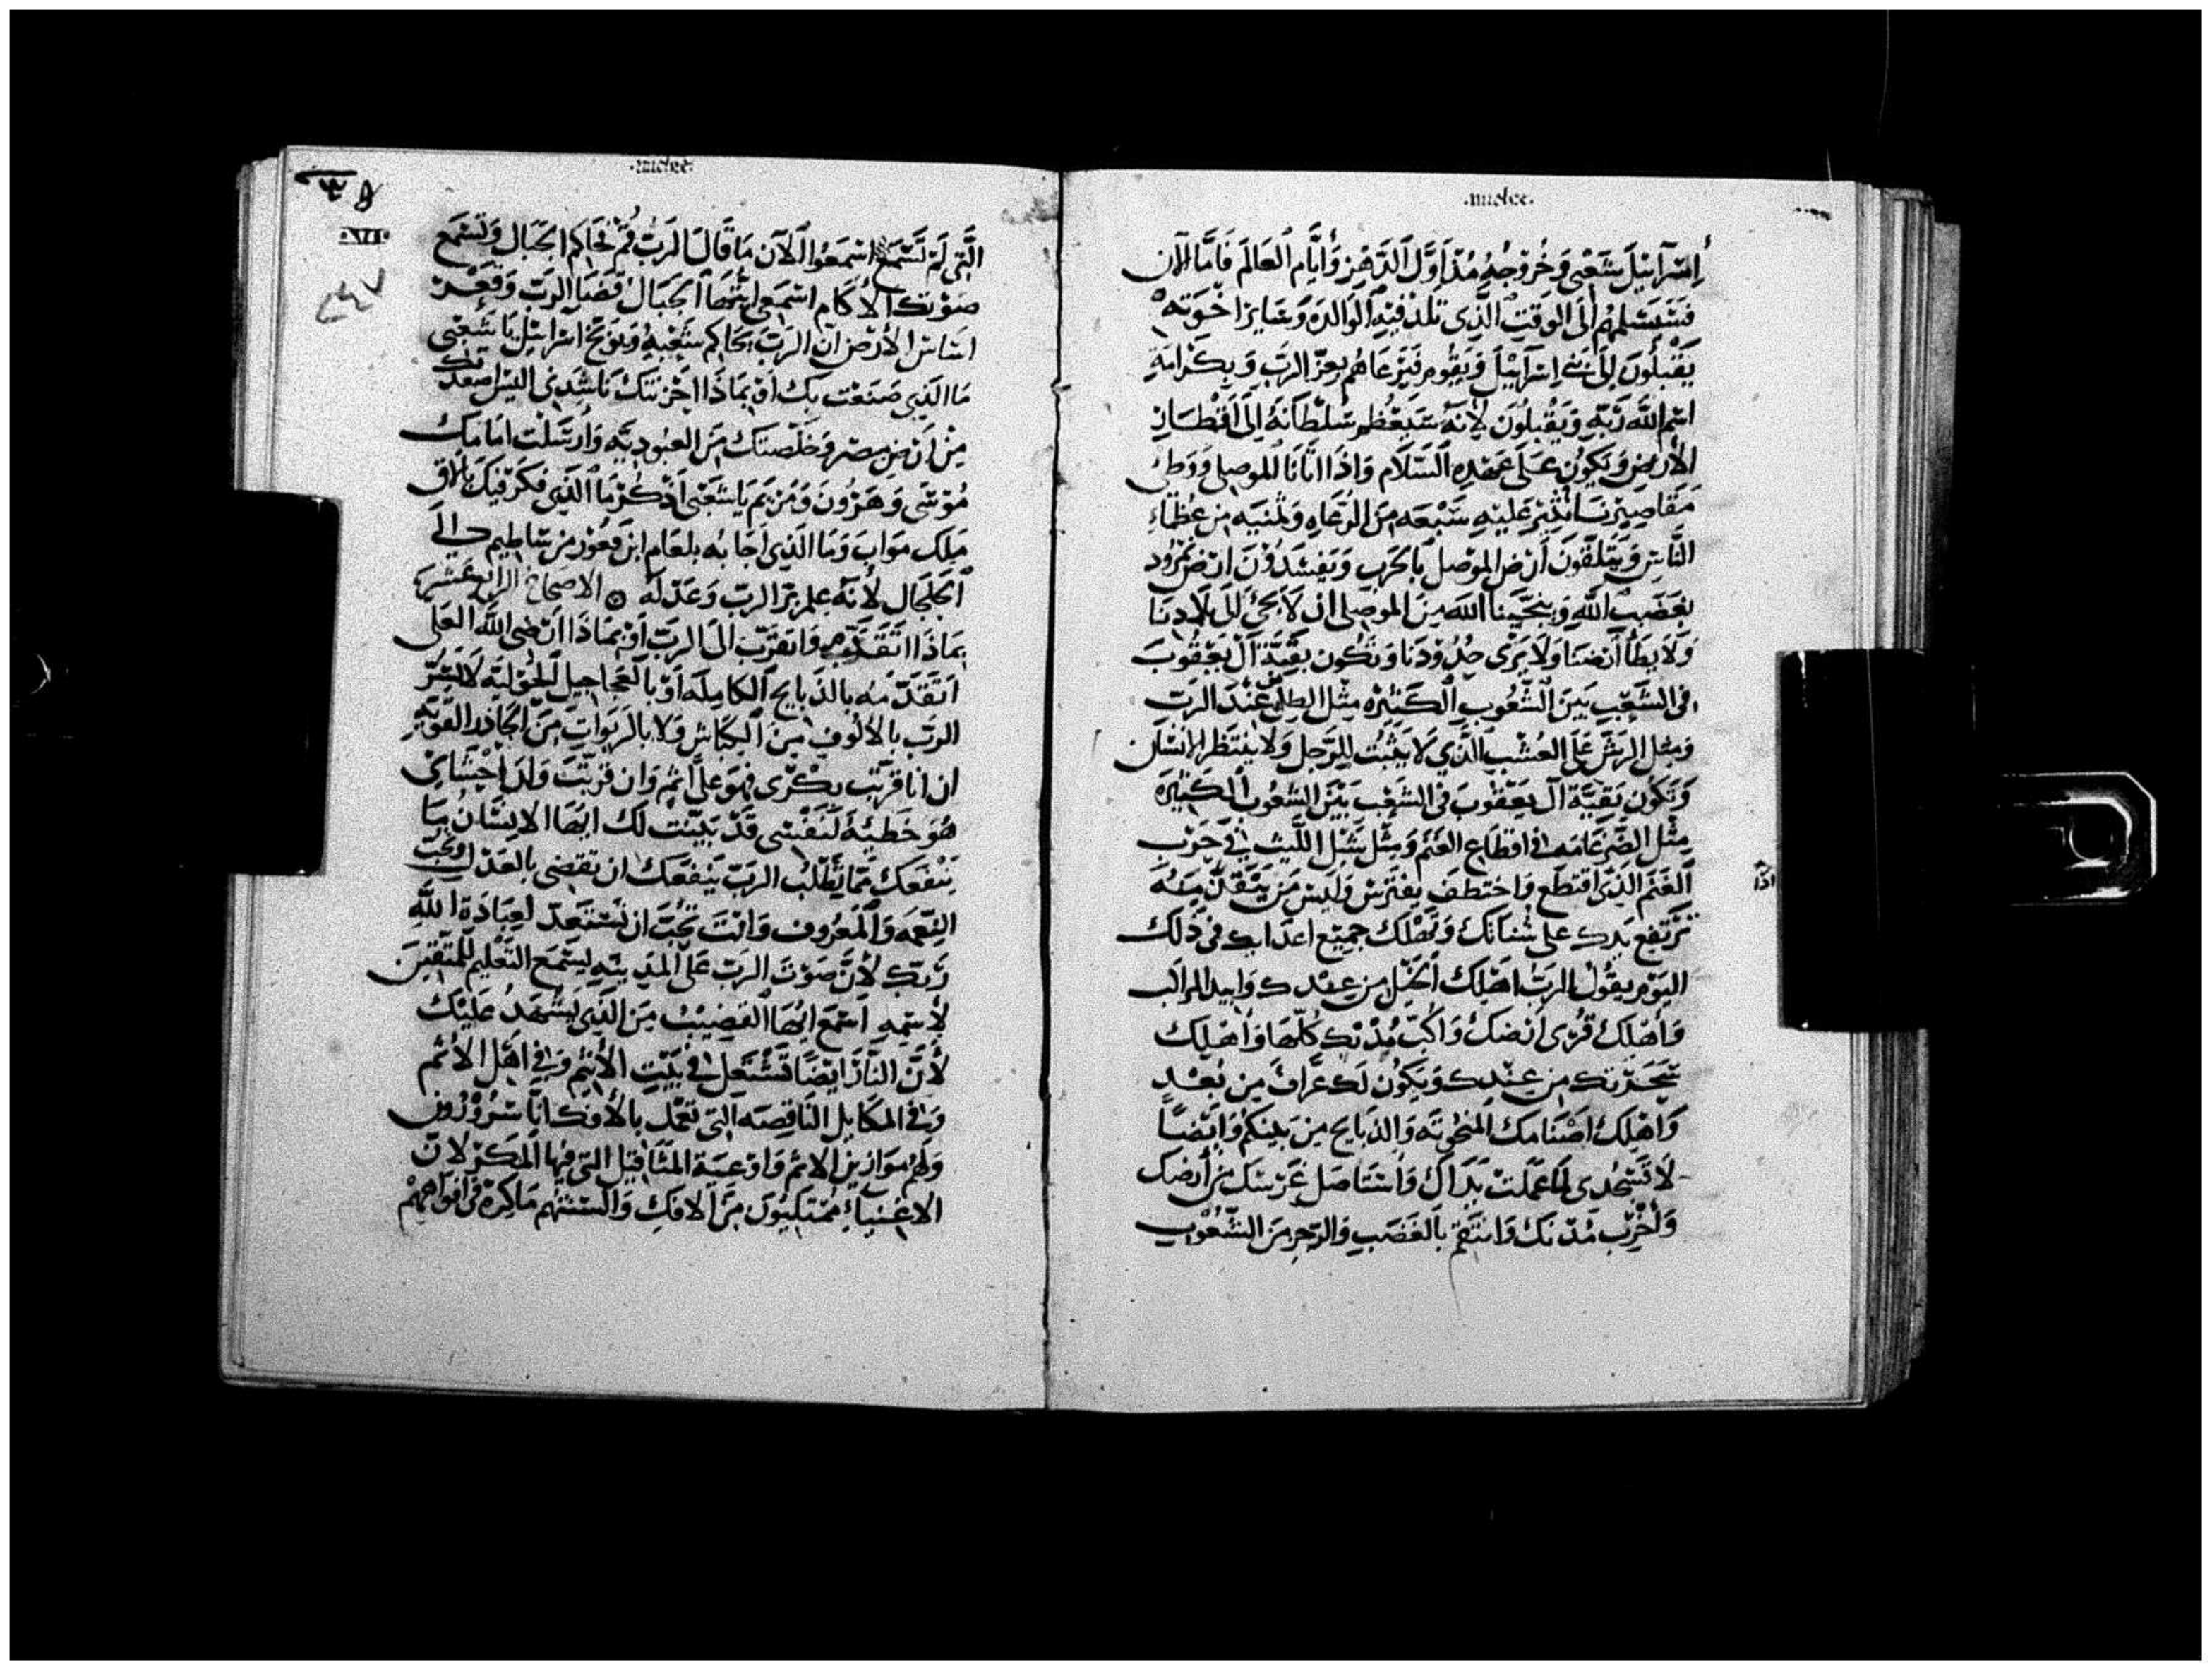 .michee.
إسرآئيل شعبي وخروجه مذ أول الدهر وأيام العالم فأما الآن
فستسلمهم إلى الوقت الذي تلد فيه الوالده وساير اخوته
يقبلون إلى بني إسرآئيل ويقوم فيرعاهم بعز الرب وبكرامة
اسم الله ربه ويقبلون لأنه سيعظم سلطانه إلى أقطار
الأرض ويكون على عهده السلام واذا اتانا الموصلي ووطى
مقاصيرنا نثير عليه سبعه من الرعاه وثمنيه من عظماء
الناس ويتلقون أرض الموصل بالحرب ويفسدون ارض نمرود
بغضب الله وينجينا الله من الموصلي ان لا يجئ الى بلادنا
ولا يطأ أرضنا ولا يرى حدودنا وتكون بقية آل يعقوب
في الشعب بين الشعوب الكثيره مثل الطل عند الرب
ومثل الرش على العشب الذي لا يثبت للرجل ولا ينتظر الإنسان
وتكون بقية آل يعقوب في الشعب بين الشعوب الكثيره
مثل الضرغامه في اقطاع الغنم ومثل شبل الليث في حزب
الغنم الذي اقتطع واختطف يفترس وليس من ينقذ منه
ترتفع يدك على شنأتك وتهلك جميع اعدايك في ذلك
اليوم يقول الرب اهلك الخيل من عندك وابيد المراكب
وأهلك قرى ارضك وأكب مدنك كلها وأهلك
سحرتك من عندك ويكون لك عراف من بعد
وأهلك اصنامك المنحوته والذبايح من بينكم وايضا
لا تسجدي لما عملت يداك واستاصل غرسك من أرضك
وأخرب مدنك وانتقم بالغضب والرجز من الشعوب
.michee.
.VI.
التي لم تسمع اسمعوا الآن ما قال الرب قم فحاكم الجبال وتسمع
صوتك الأكام اسمعي ايتها الجبال قضا الرب وقعر
اساس الأرض أن الرب يحاكم شعبه ويوبخ اسرائيل يا شعبي
ما الذي صنعت بك او بماذا احزنتك ناشدني اليس اصعدتك
من ارض مصر وخلصتك من العبوديه وارسلت امامك
موسى وهرون ومريم يا شعبي اذكر ما الذي فكر فيك بالاق
ملك مواب وما الذي اجابه بلعام ابن فعور من ساطيم حي الى
الجلجال لأنه علم بر الرب وعدله الاصحاح الرابع عشر
بماذا اتقدم واتقرب الى الرب او بماذا ارضي الله العلي
اتقدمه بالذبايح الكامله أو بالعجاجيل الحوليه لا لنسر
الرب بالألوف من الكباش ولا بالربوات من الجادر القويه
ان انا قربت بكري فهو علي اثم وان قربت ولد احشاي
هو خطية لنفسي قد بينت لك ايها الانسان ما
ينفعك مما يطلب الرب ينفعك ان تقضي بالعدل وتحب
النعمه والمعروف وانت تحب ان تستعد لعبادة الله
ربك لأن صوت الرب على المدينه يسمع التعليم للمتقين
لإسمه اسمع ايها القضيب من الذي يشهد عليك
لأن النار ايضا تشتعل في بيت الأثيم وفي اهل الأثم
وفي المكايل الناقصه التي تعمل بالأوفك
ولهم موازين الاثم واوعية المثاقيل التي فيها المكر لان
الاغنياء ممتليون من الافك والسنتهم ماكرة في افواههم